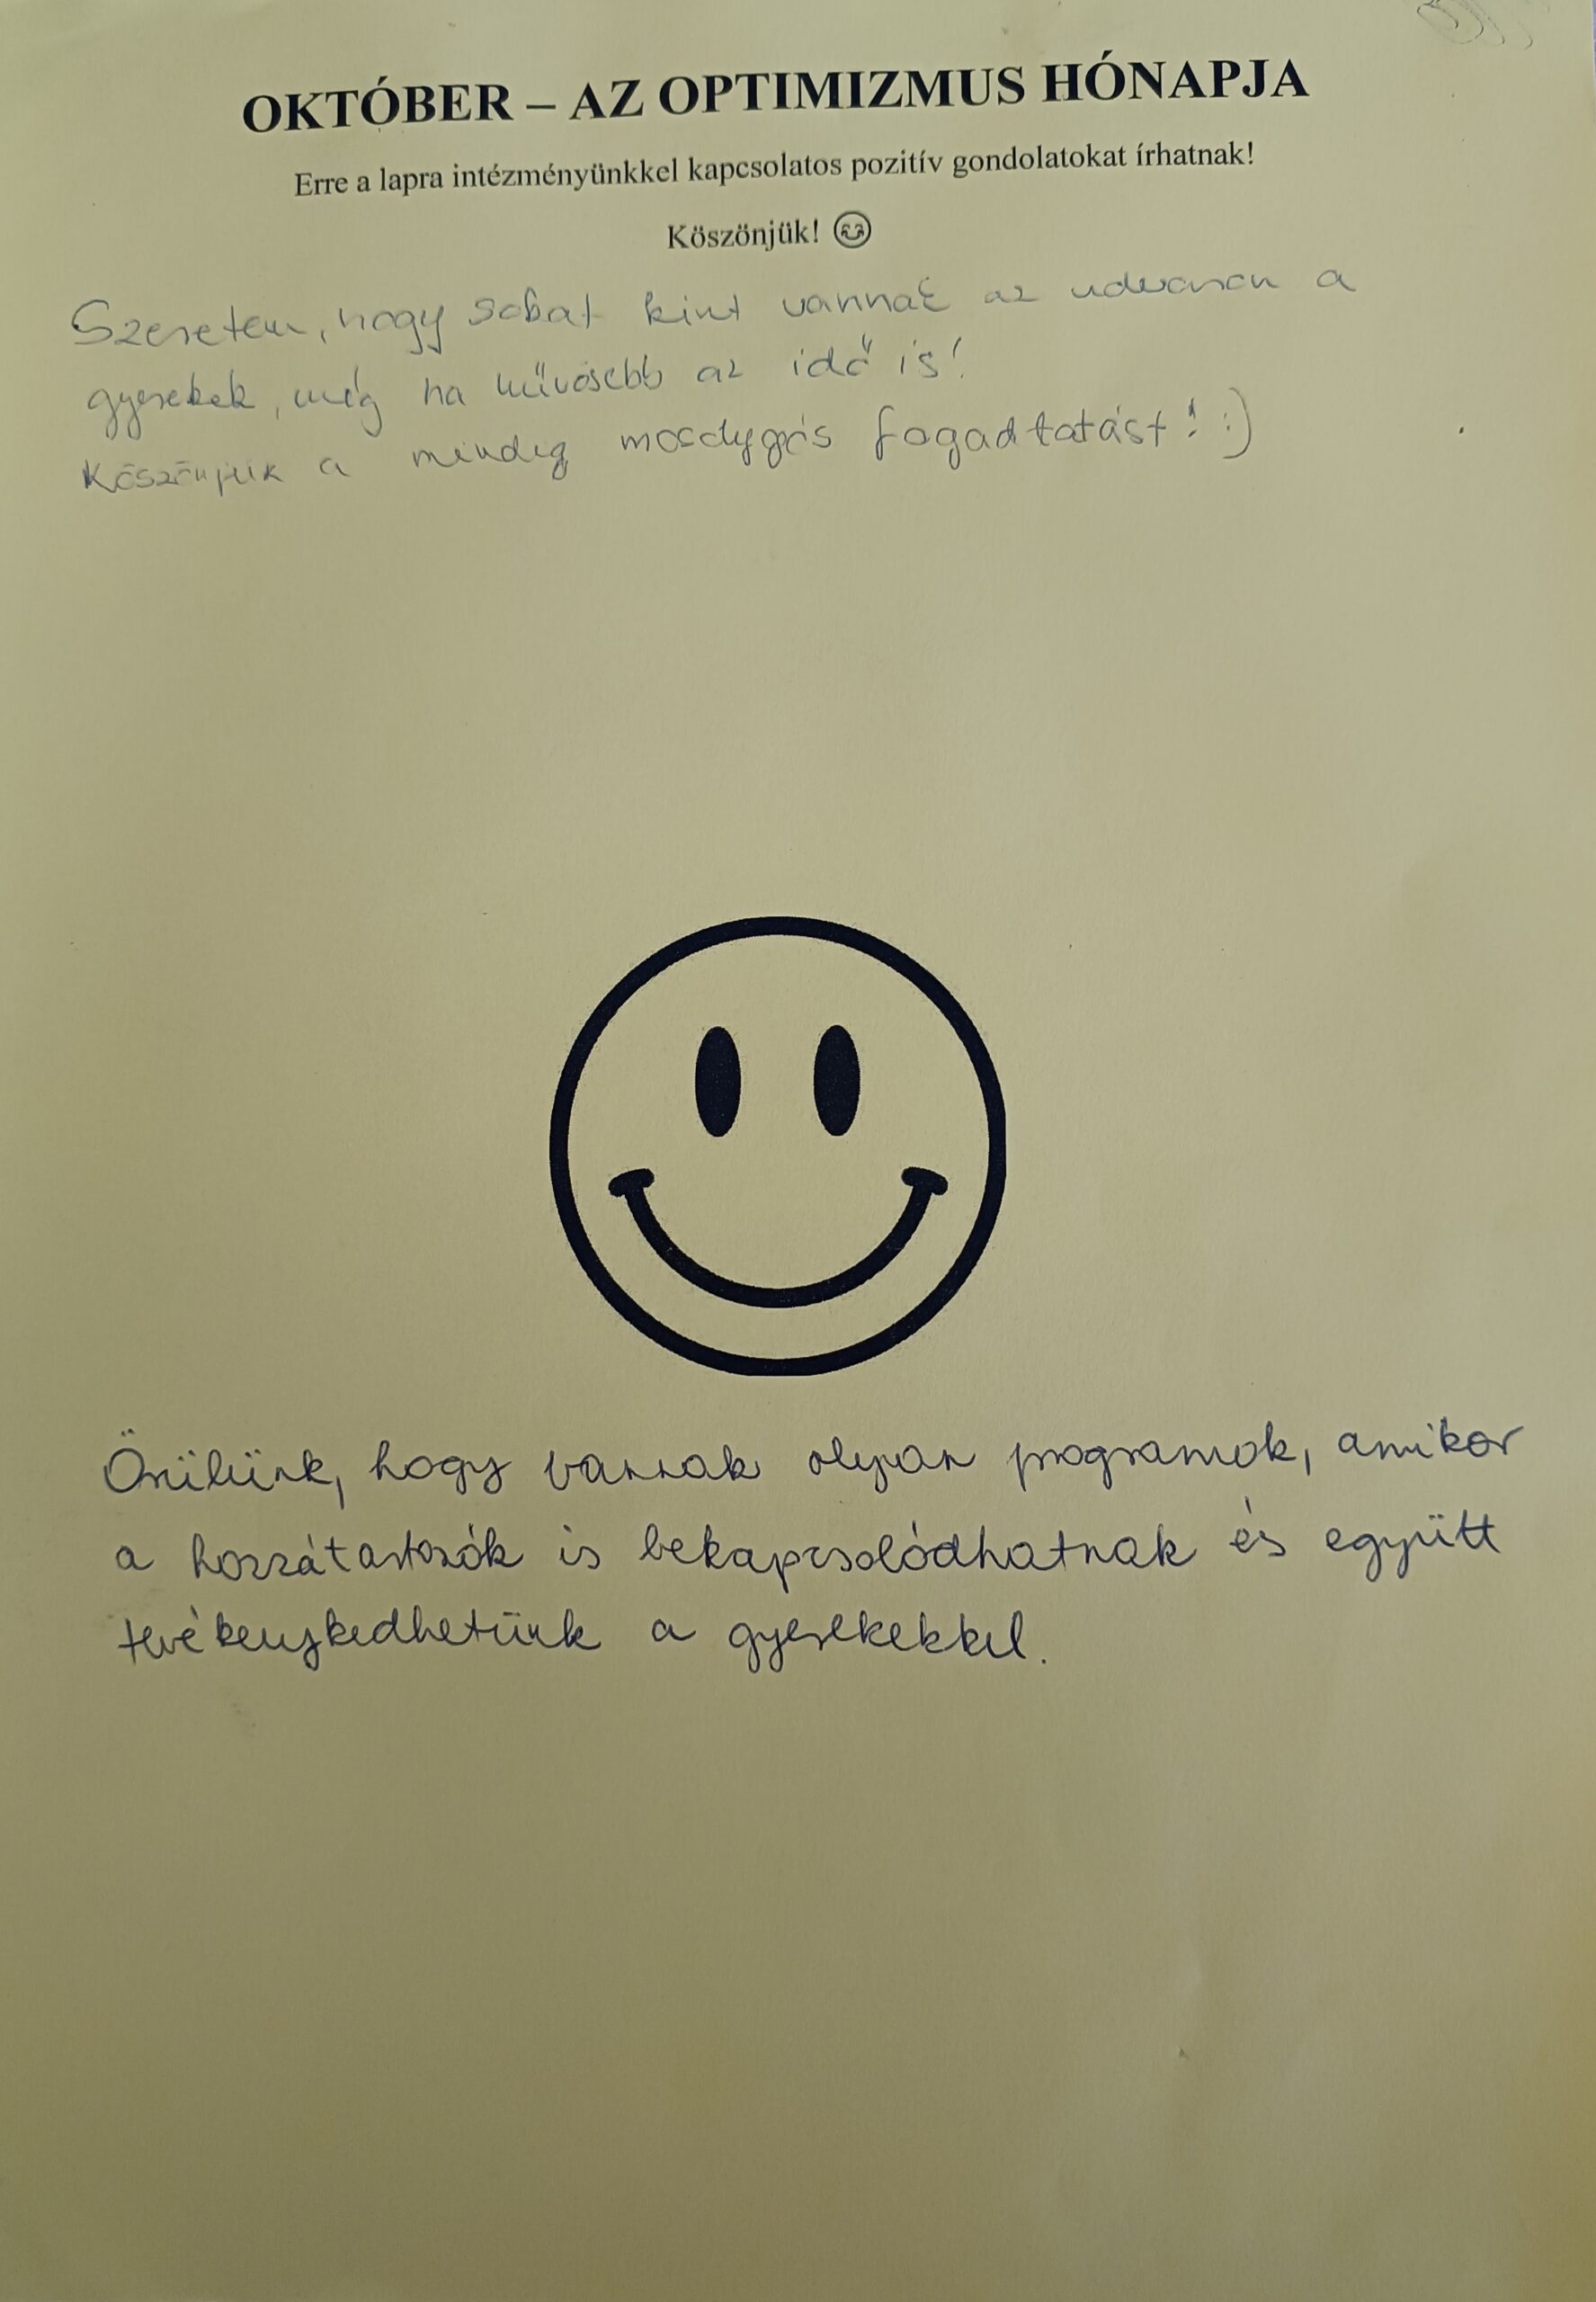 OKTÓBER – AZ OPTIMIZMUS HÓNAPJA
Erre a lapra intézményünkkel kapcsolatos pozitív gondolatokat írhatnak!
Köszönjük! 😊
Szeretem, hogy sokat kint vannak az udvaron a
gyerekek, még ha hűvösebb az idő is!
Köszönjük a mindig mosolygós fogadtatást! :)
Örülünk, hogy vannak olyan programok, amikor
a hozzátartozók is bekapcsolódhatnak és együtt
tevékenykedhetünk a gyerekekkel.